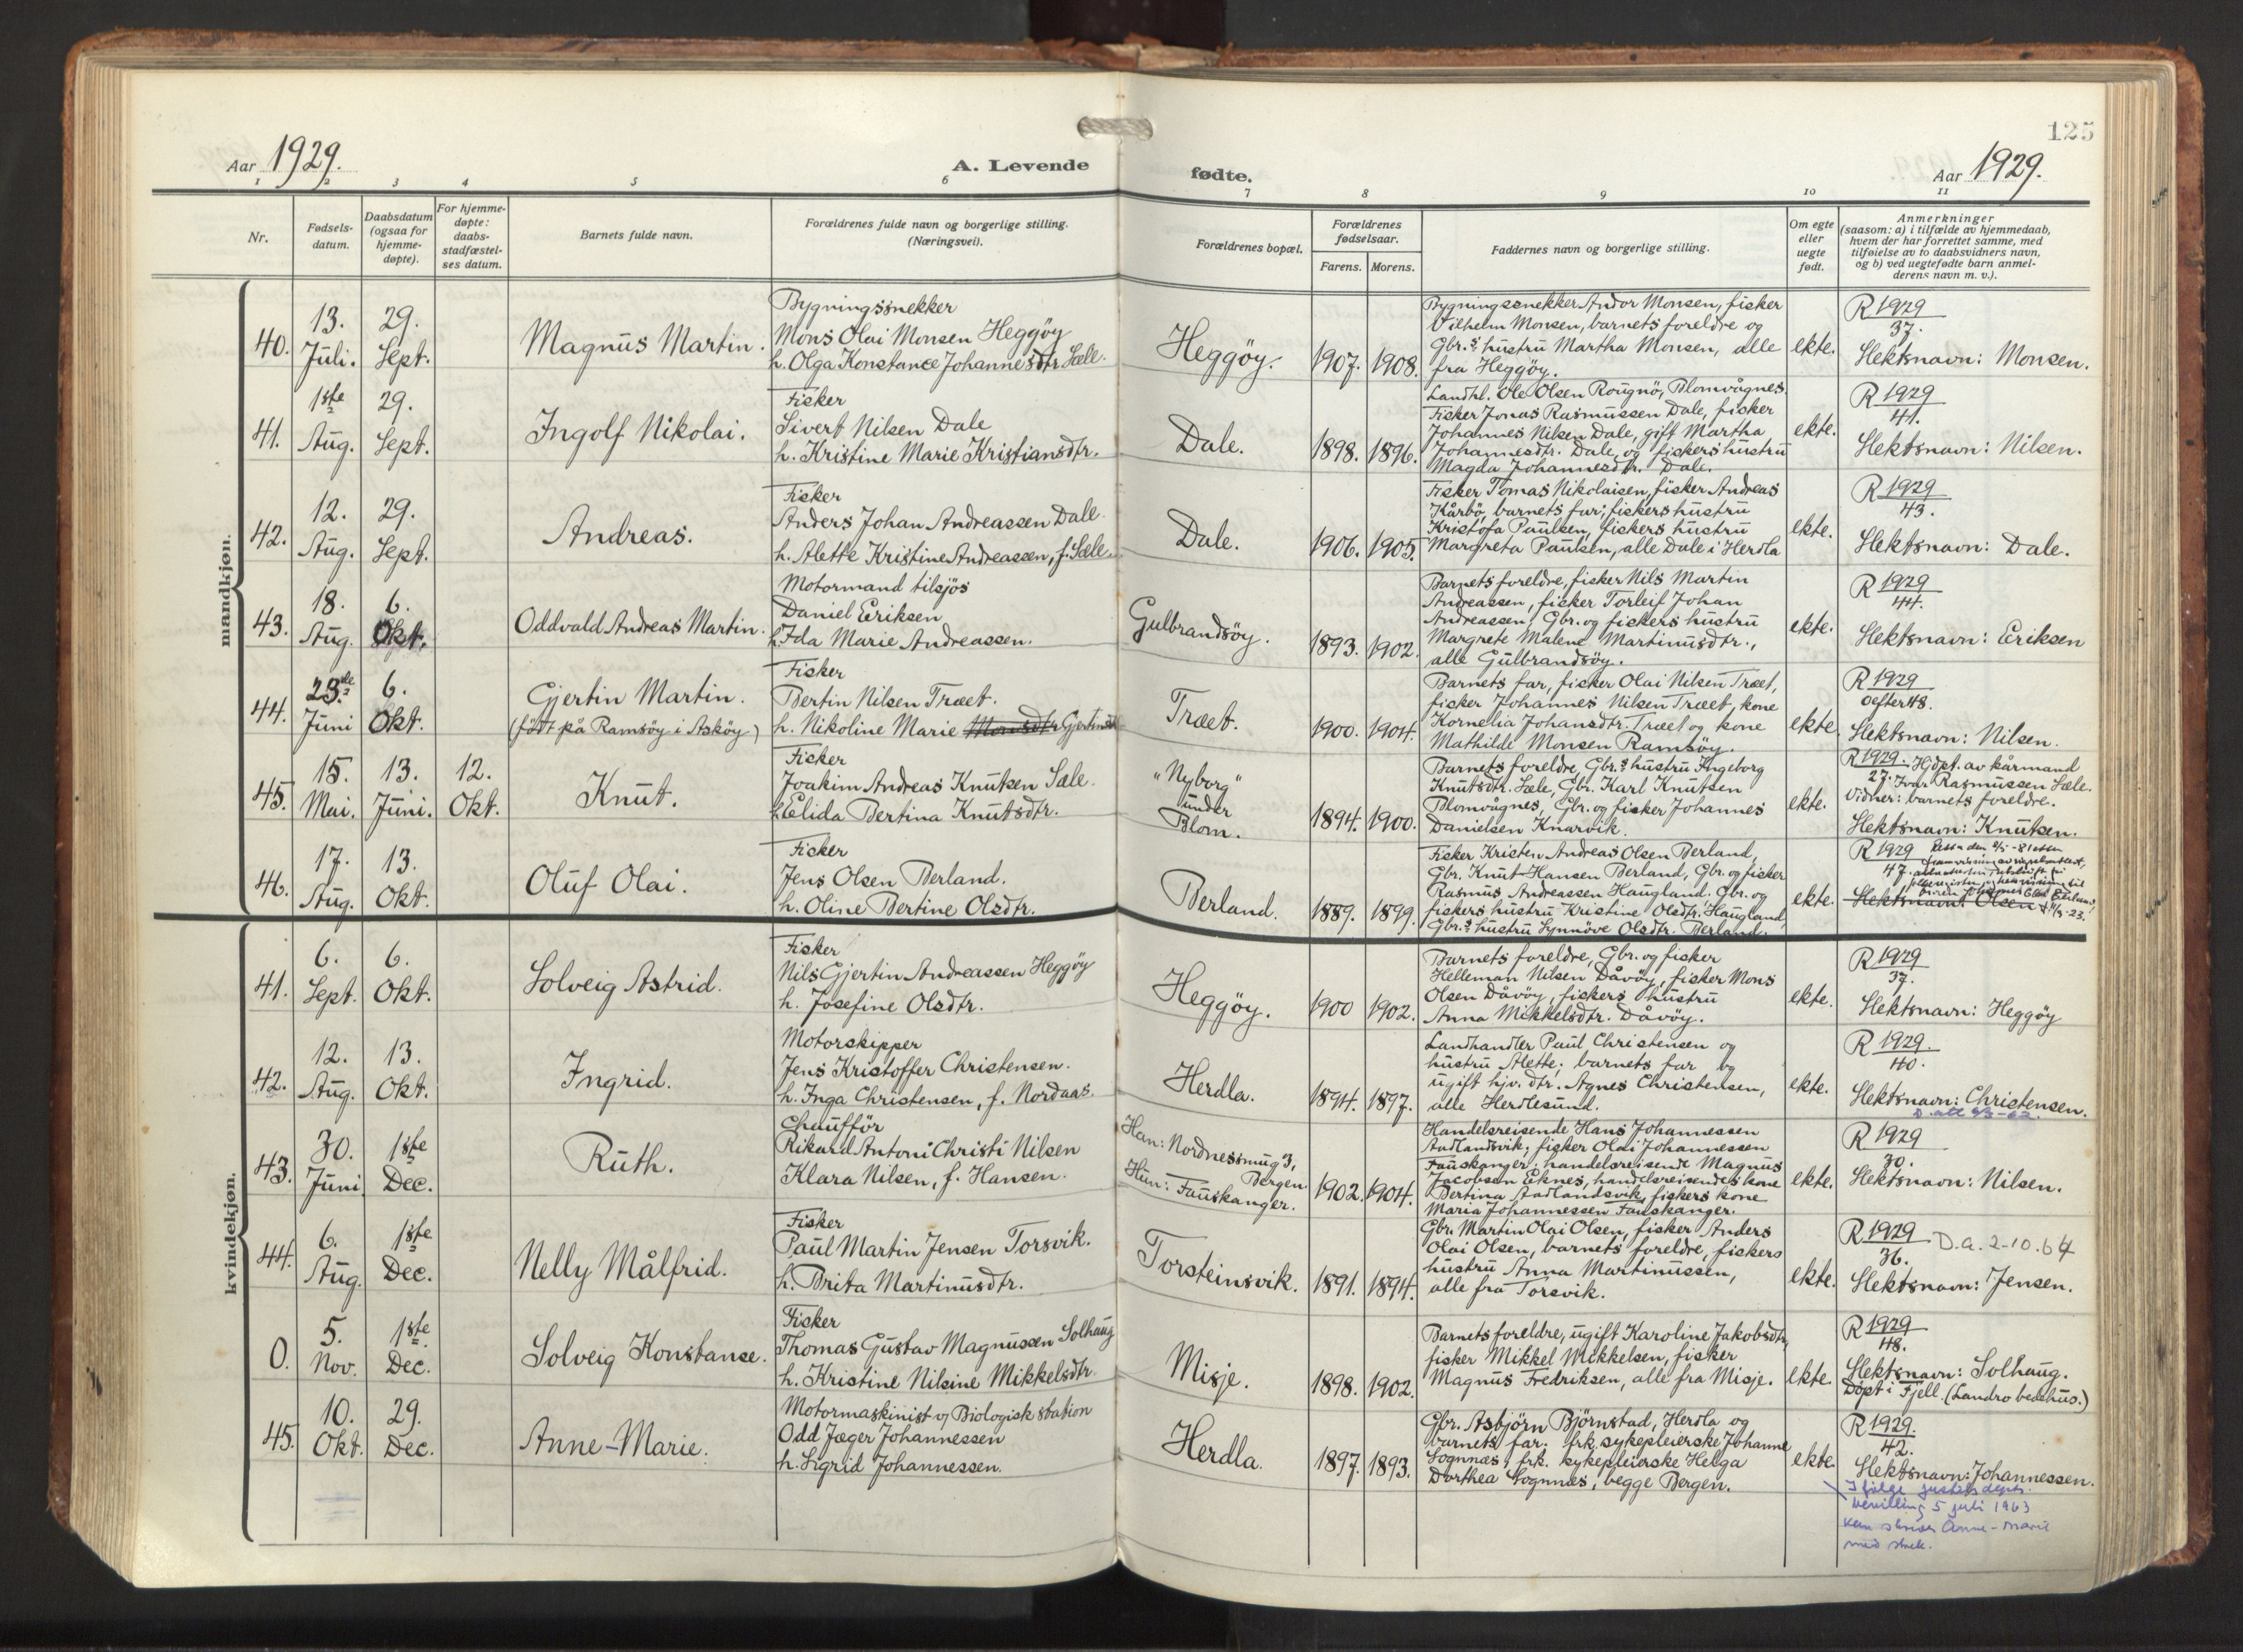 125
Aar 1929.
A. Levende
fødte.
Aar 1929.
1 2 3 4 5 6 7 8 9 10 11
Nr.
Fødsels-
datum.
Daabsdatum
(ogsaa for
hjemme-
døpte).
For hjemme-
døpte:
daabs-
stadfæstel-
ses datum.
Barnets fulde navn.
Forældrenes fulde navn og borgerlige stilling.
(Næringsvei).
Forældrenes bopæl.
Forældrenes
fødselsaar.
Farens. Morens.
Faddernes navn og borgerlige stilling.
Om egte
eller
uegte
født.
Anmerkninger
(saasom: a) i tilfælde av hjemmedaab,
hvem der har forrettet samme, med
tilføielse av to daabsvidners navn,
og b) ved uegtefødte barn anmel-
derens navn m. v.).
mandkjøn.
40.
13.
Juli.
29.
Sept.
Magnus Martin.
Bygningssnekker
Mons Olai Monsen Heggöy
h. Olga Konstance Johannesdtr Sæle.
Heggöy.
1907. 1908.
Bygningssnekker Andor Monsen, fisker
Vilhelm Monsen, barnets foreldre og
Gbr.s hustru Martha Monsen, alle
fra Heggöy.
ekte.
R 1929
37.
Slektsnavn: Monsen.
41.
1ste
Aug.
29.
Sept.
Ingolf Nikolai.
Fisker
Sivert Nilsen Dale
h. Kristine Marie Kristiansdtr.
Dale.
1898. 1896.
Landhl. Ole Olsen Rougnö, Blomvågnes.
Fisker Jonas Rasmussen Dale, fisker
Johannes Nilsen Dale, gift Martha
Johannesdtr. Dale, og fiskers hustru
Magda Johannesdtr. Dale.
ekte.
R 1929
41.
Slektsnavn: Nilsen.
42.
12.
Aug.
29.
Sept.
Andreas.
Fisker
Anders Johan Andreassen Dale.
h. Alette Kristine Andreassen, f. Sæle.
Dale.
1906. 1905.
Fisker Tomas Nikolaisen, fisker Andreas
Kårbö, barnets far, fiskers hustru
Kristofa Paulsen, fiskers hustru
Margreta Paulsen, alle Dale i Herdla
ekte.
R 1929
43.
Slektsnavn: Dale.
43.
18.
Aug.
6.
Okt.
Oddvald Andreas Martin.
Motormand tilsjös
Daniel Eriksen
h. Ida Marie Andreassen.
Gulbrandsöy.
1893. 1902.
Barnets foreldre, fisker Nils Martin
Andreassen, fisker Torleif Johan
Andreassen, Gbr. og fiskers hustru
Margrete Malene Martinusdtr.,
alle Gulbrandsöy.
ekte.
R 1929
44.
Slektsnavn: Eriksen
44.
23de
Juni
6.
Okt.
Gjertin Martin.
(født på Ramsöy i Asköy)
Fisker
Bertin Nilsen Træet.
h. Nikoline Marie Monsdtr Gjertinsdtr
Træet.
1900. 1904.
Barnets far, fisker Olai Nilsen Træet,
fisker Johannes Nilsen Træet, kone
Kornelia Johansdtr. Træet og kone
Mathilde Monsen Ramsöy.
ekte.
R 1929
0 efter 48.
Slektsnavn: Nilsen.
45.
15.
Mai.
13.
Juni.
12.
Okt.
Knut.
Fisker
Joakim Andreas Knutsen Sæle.
h. Elida Bertina Knutsdtr.
"Nyborg"
under
Blom.
1894. 1900.
Barnets foreldre, Gbr.s hustru Ingeborg
Knutsdtr. Sæle, Gbr. Karl Knutsen
Blomvågnes, Gbr. og fisker Johannes
Danielsen Knarvik.
ekte.
R 1929. Hjdpt. av kårmand
27. Ivar Rasmussen Sæle.
Vidner: barnets foreldre.
Slektsnavn: Knutsen.
46.
17.
Aug.
13.
Okt.
Oluf Olai.
Fisker
Jens Olsen Berland.
h. Oline Bertine Olsdtr.
Berland.
1889. 1899.
Fisker Kristen Andreas Olsen Berland,
Gbr. Knut Hansen Berland, Gbr. og fisker
Rasmus Andreassen Haugland. Gbr. og
fiskers hustru Kristine Olsdtr. Haugland
Gbr.s hustru Synnöve Olsdtr. Berland.
ekte.
R 1929
47.
Slektsnavn: Olsen
kvindekjøn.
41.
6.
Sept.
6.
Okt.
Solveig Astrid.
Fisker
Nils Gjertin Andreassen Heggöy
h. Josefine Olsdtr.
Heggöy.
1900 1902.
Barnets foreldre, Gbr. og fisker
Helleman Nilsen Dåvöy, fisker Mons
Olsen Dåvöy, fiskers hustru
Anna Mikkelsdtr. Dåvöy.
ekte.
R 1929
37.
Slektsnavn: Heggöy
42.
12.
Aug.
13.
Okt.
Ingrid.
Motorskipper
Jens Kristoffer Christensen.
h. Inga Christensen, f. Nordaas.
Herdla.
1894. 1897.
Landhandler Paul Christensen og
hustru Alette, barnets far og
ugift hjv. dtr. Agnes Christensen,
alle Herdlesund.
ekte.
R 1929.
40.
Slektsnavn: Christensen.
43.
30.
Juni
1ste
Dec.
Ruth.
Chaufför
Rikard Antoni Christi Nilsen
Klara Nilsen, f. Hansen.
Han: Nordnessmug 3,
Bergen.
Hun: Fauskanger.
1902. 1904.
Handelsreisende Hans Johannessen
Audlandsvik, fisker Olai Johannessen
Fauskanger; handelsreisende Magnus
Jacobsen Eknes, handelsreisendes kone
Bertina Audlandsvik, fiskers kone
Maria Johannessen Fauskanger.
ekte.
R 1929
30.
Slektsnavn: Nilsen.
44.
6.
Aug.
1ste
Dec.
Nelly Målfrid.
Fisker
Paul Martin Jensen Torsvik.
h. Brita Martinusdtr.
Torsteinsvik.
1891. 1894.
Gbr. Martin Olai Olsen, fisker Anders
Olai Olsen, barnets foreldre, fiskers
hustru Anna Martinussen,
alle fra Torsvik.
ekte.
R 1929 D.a. 2-10.64
36.
Slektsnavn: Jensen.
0.
5.
Nov.
1ste
Dec.
Solveig Konstanse.
Fisker
Thomas Gustav Magnussen Solhaug
h. Kristine Nilsine Mikkelsdtr.
Misje.
1898. 1902.
Barnets foreldre, ugift Karoline Jakobsdtr,
fisker Mikkel Mikkelsen, fisker
Magnus Fredriksen, alle fra Misje.
ekte.
R 1929
48.
Slektsnavn: Solhaug.
Döpt i Fjell. (Landro bedehus.)
45.
10.
Okt.
29.
Dec.
Anne-Marie.
Motormaskinist v/ Biologisk station
Odd Jæger Johannessen
h. Sigrid Johannessen.
Herdla.
1897. 1893.
Gbr. Asbjörn Björnstad, Herdla og
barnets far. frk. sykepleierske Johanne
Sognnæs, frk. sykepleierske Helga
Dorthea Sognnæs, begge Bergen.
ekte.
R 1929.
42.
Slektsnavn: Johannessen.
Ifølge justisdepts.
bevilling 5 juli 1963
kan skrives Anne-Marie
med strek.